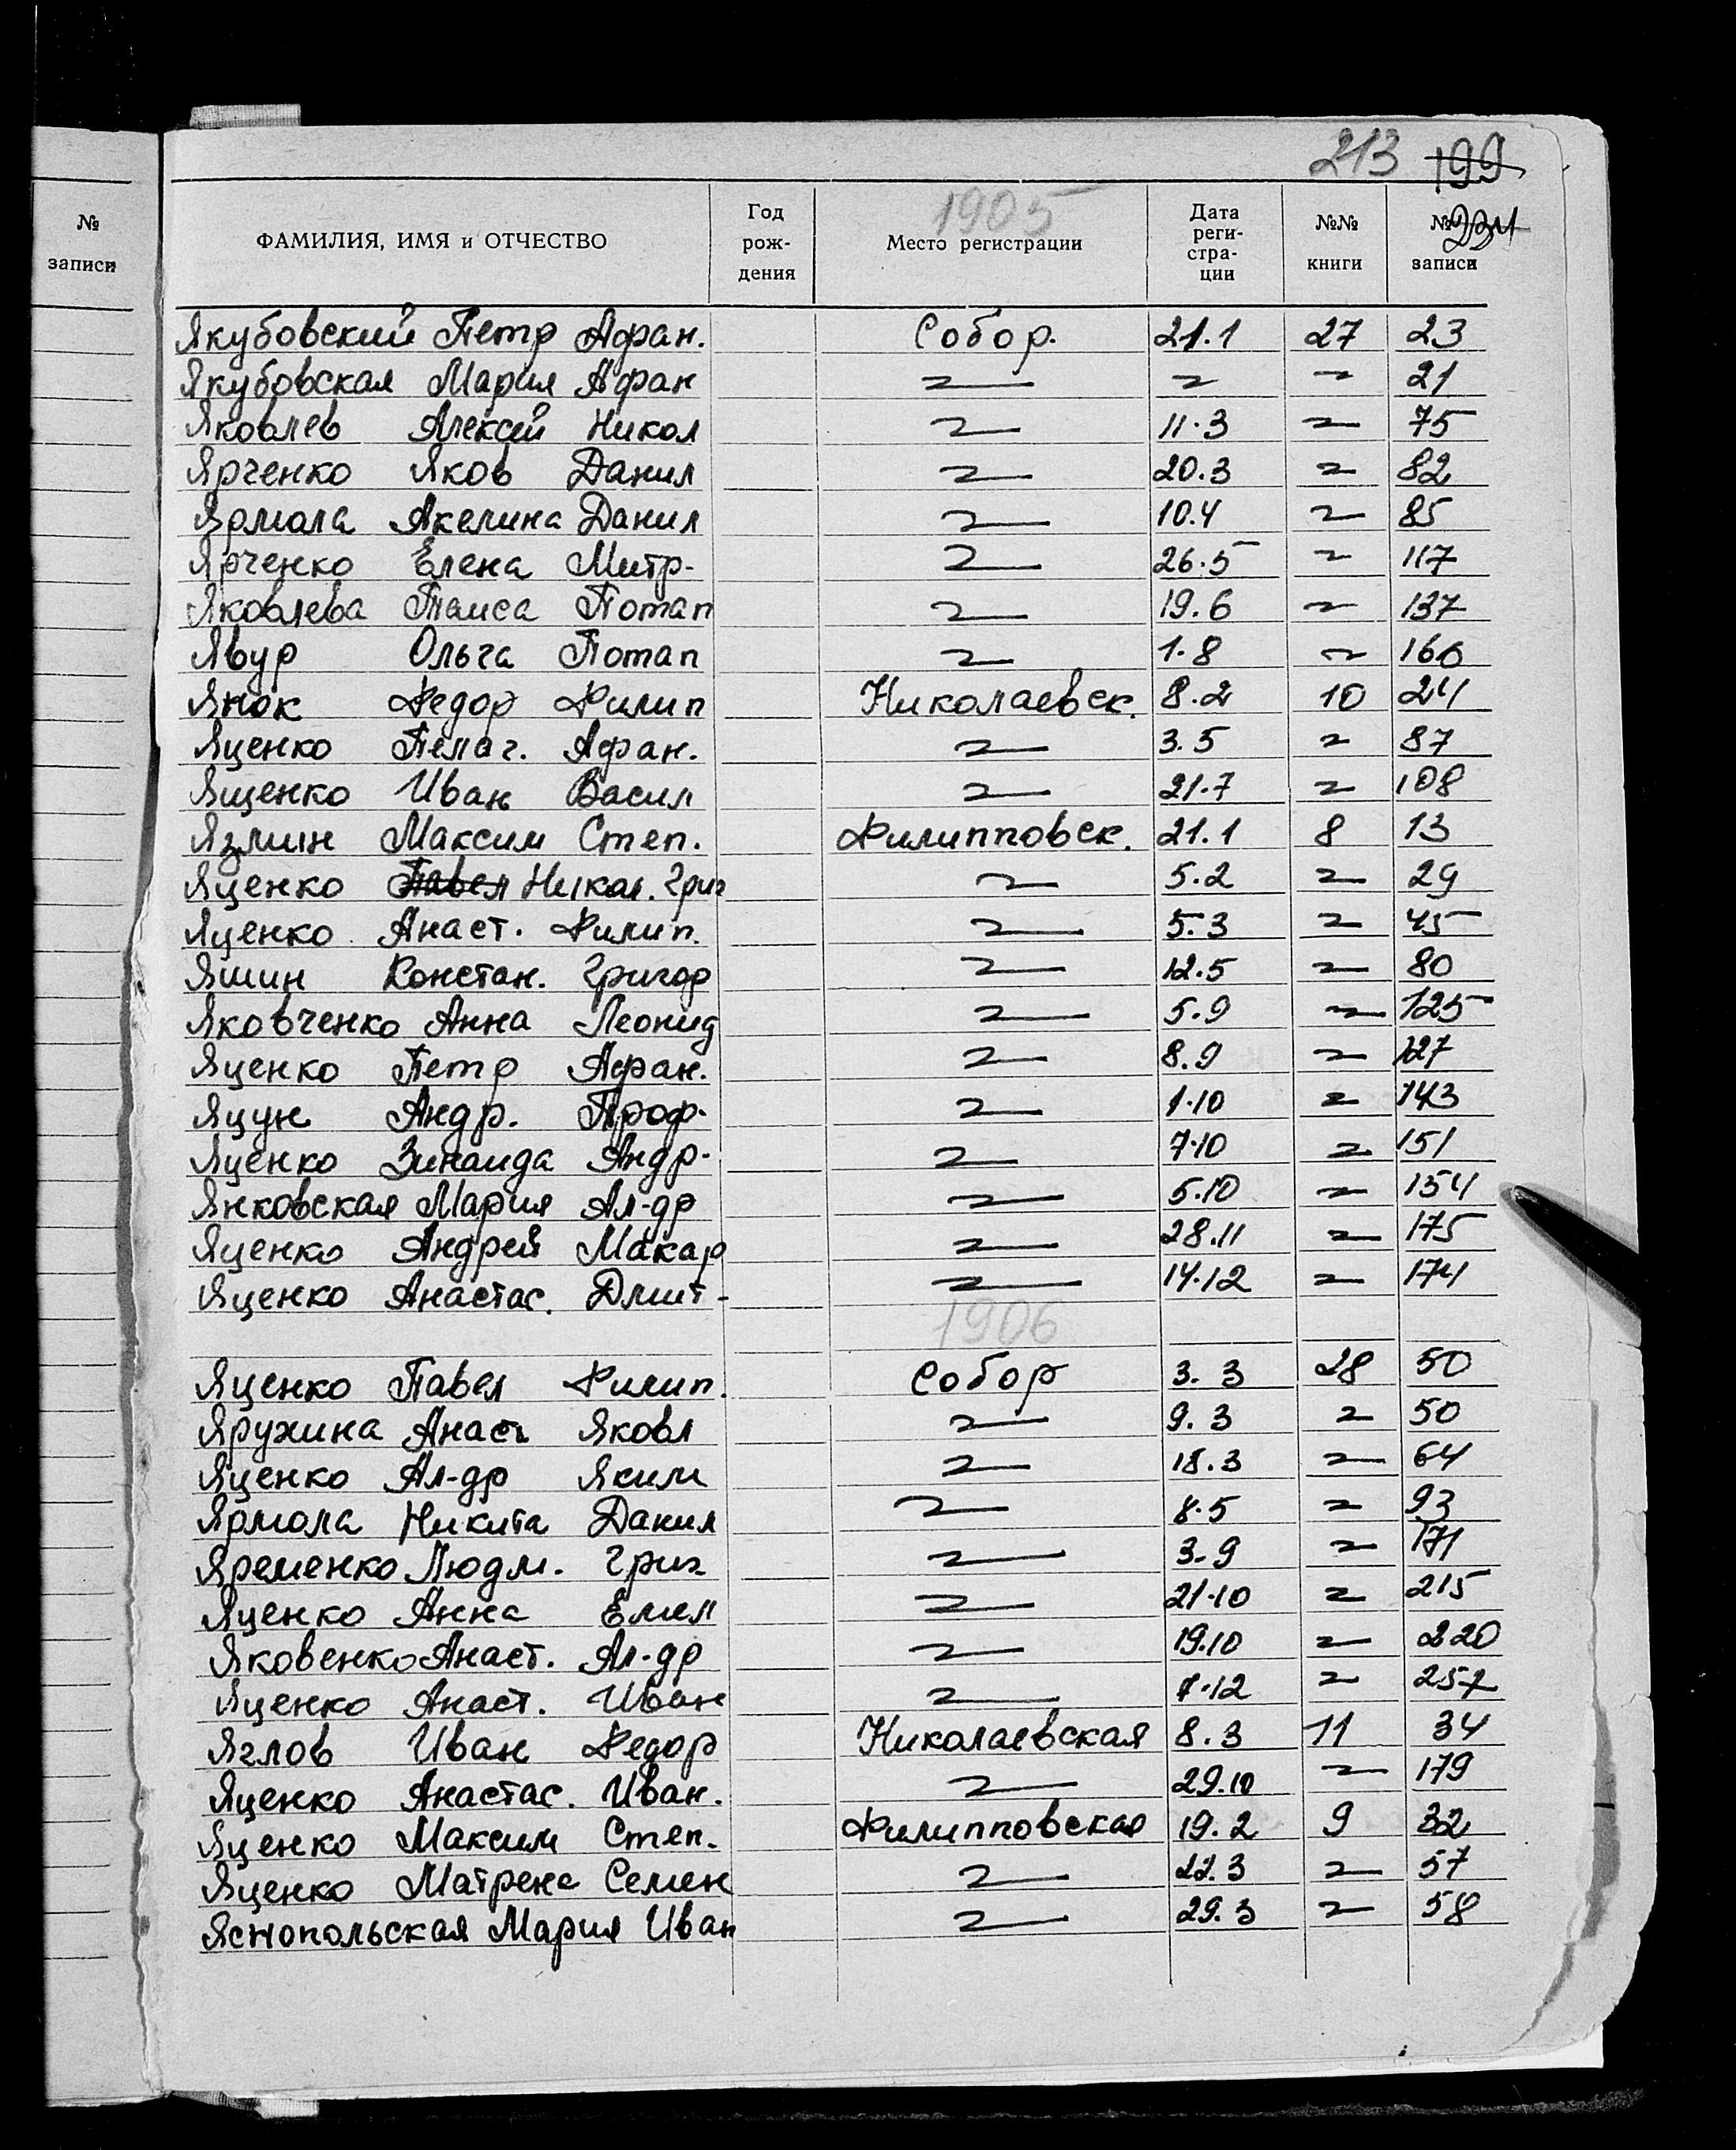 213 199
231
№ записи
ФАМИЛИЯ, ИМЯ и ОТЧЕСТВО Год рождения 1905 Место регистрации Дата регистрации №№ книги №№ записи
Якубовский Петр Афан. Собор. 21.1 27 23
Якубовская Мария Афан 〃 〃 〃 21
Яковлев Алексей Никол 〃 11.3 〃 75
Ярченко Яков Данил 〃 20.3 〃 82
Ярмола Акелина Данил 〃 10.4 〃 85
Ярченко Елена Митр. 〃 26.5 〃 117
Яковлева Таиса Потап 〃 19.6 〃 137
Явур Ольга Потап 〃 1.8 〃 160
Янок Федор Филип Николаевск. 8.2 10 24
Яценко Пелаг. Афан. 〃 3.5 〃 87
Ященко Иван Васил 〃 21.7 〃 108
Язмин Максим Степ. Филипповск. 21.1 8 13
Яценко Павел Никол. Григ 〃 5.2 〃 29
Яценко Анаст. Филип. 〃 5.3 〃 45
Яшин Констан. Григор 〃 12.5 〃 80
Яковченко Анна Леонид 〃 5.9 〃 125
Яценко Петр Афан. 〃 8.9 〃 127
Яцун Андр. Проф. 〃 1.10 〃 143
Яценко Зинаида Андр. 〃 7.10 〃 151
Янковская Мария Ал-др 〃 5.10 〃 154
Яценко Андрей Макар 〃 28.11 〃 175
Яценко Анастас. Дмит. 〃 14.12 〃 174
1906
Яценко Павел Филип. Собор 3.3 28 50
Яружина Анаст Яковл 〃 9.3 〃 50
Яценко Ал-др Яким 〃 18.3 〃 64
Ярмола Никита Данил 〃 8.5 〃 93
Яременко Людм. Григ 〃 3.9 〃 171
Яценко Анна Емел 〃 21.10 〃 215
Яковенко Анаст. Ал-др 〃 19.10 〃 220
Яценко Анаст. Иван 〃 7.12 〃 257
Яглов Иван Федор Николаевская 8.3 11 34
Яценко Анастас. Иван. 〃 29.10 〃 179
Яценко Максим Степ. Филипповская 19.2 9 32
Яценко Матрена Семен 〃 22.3 〃 57
Яснопольская Мария Иван 〃 29.3 〃 58